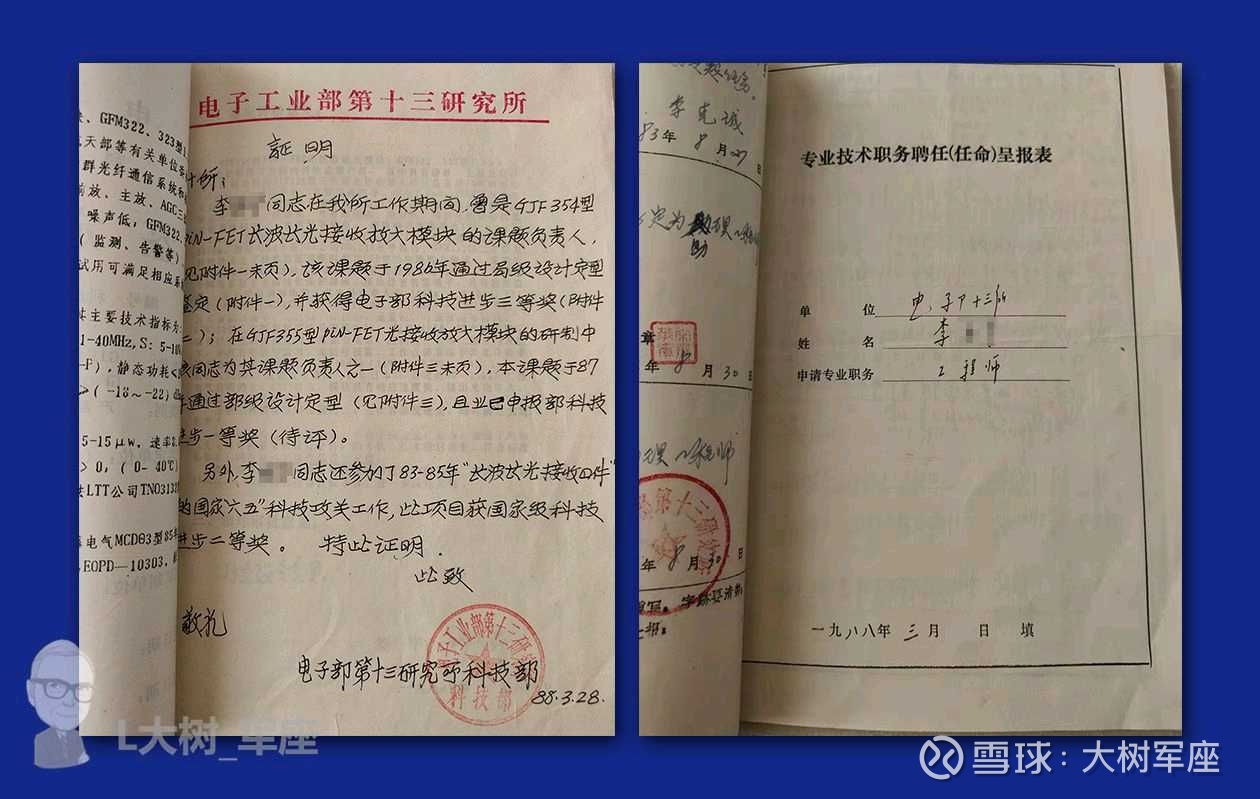 电子工业部第十三研究所
证明
计所：
李 同志在我所工作期间，曾是GJF354型
PiN-FET长波长光接收放大模块的课题负责人，
见附件一末页），该课题于1986年通过局级设计定型
鉴定（附件一），并获得电子部科技进步三等奖（附件
二）；在GJF355型PiN-FET光接收放大模块的研制中
该同志为其课题负责人之一（附件三末页），本课题于87
年通过部级设计定型（见附件三），且业已申报部科技
进步一等奖（待评）。
另外，李 同志还参加了83-85年“长波长光接收四件”
的国家“六五”科技攻关工作，此项目获国家级科技
进步二等奖。 特此证明．
此致
敬礼
电子部第十三研究所科技部
88.3.28.
电子工业部第十三研究所
科技部
、GFM322、323型
天部等有关单位
群光纤通信系统和
前放、主放、AGC三
噪声低；GFM322、
（监测、告警等）
试用可满足相应系
主要技术指标为
1-40MHz,S：5-10
F），静态功耗<
>（-18～-22）d
5-15μw，速率8.
> 0，（0-40℃）
LTT公司TNO3132
电气MCD03型85年
EOPD—10303，
李克诚
83年 8月27
定为助理工程师
章
年 8月30日
理工程师
第十三研究所
年 8月30日
填写。字迹要清楚
专业技术职务聘任(任命)呈报表
单 位 电子部十三所
姓 名 李
申请专业职务 工程师
一九八八年 三月 日 填
L大树_军座
雪球：大树军座